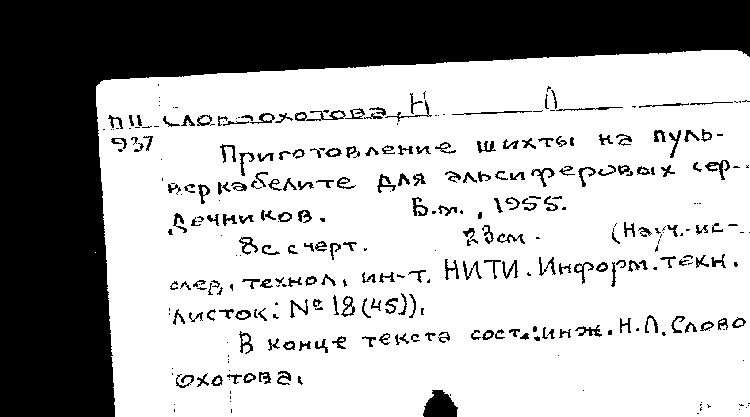 П11 Словоохотова, Н Л
937
Приготовление шихты на пуль-
веркабелите для альсиферовых сер-
дечников. Б.м., 1955.
8с. с черт. 23см. (Науч.-ис-
след. технол. ин-т. НИТИ. Информ. техн.
листок: № 18(45)).
В конце текста сост.: инж. Н.Л. Слово
охотова.